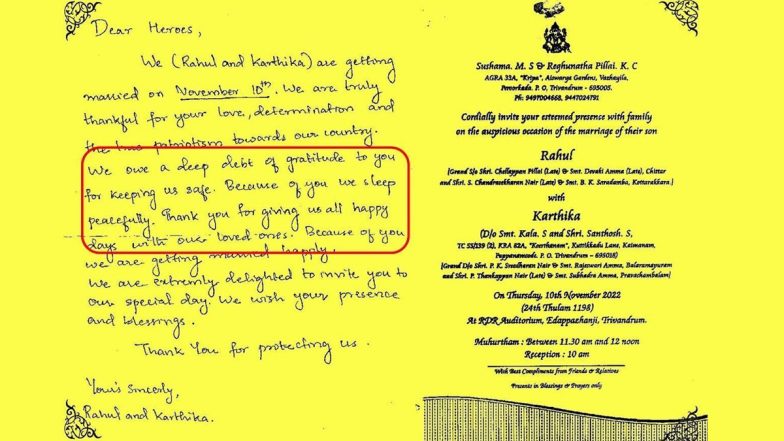 Dear Heroes,
We (Rahul and Karthika) are getting
married on November 10th. We are truly
thankful for your love, determination and
the true patriotism towards our country.
We owe a deep debt of gratitude to you
for keeping us safe. Because of you we sleep
peacefully. Thank you for giving us all happy
days with our loved ones. Because of you
we are getting married happily.
We are extremely delighted to invite you to
our special day. We wish your presence
and blessings.
Thank You for protecting us.
Your's sincerly,
Rahul and Karthika.
Sushama. M. S & Reghunatha Pillai. K. C
AGRA 33A, "Kripa", Aiswarya Gardens, Vazhayila,
Peroorkada. P. O, Trivandrum - 695005.
Ph: 9497004668, 9447024791
Cordially invite your esteemed presence with family
on the auspicious occasion of the marriage of their son
Rahul
[Grand S/o Shri. Chellappan Pillai (Late) & Smt. Devaki Amma (Late), Chittar
and Shri. S. Chandrasekharan Nair (Late) & Smt. B. K. Saradamba, Kottarakkara.]
with
Karthika
(D/o Smt. Kala. S and Shri. Santhosh. S,
TC 53/339 (2), KRA 82A, "Keerthanam", Kuttikkadu Lane, Kaimanam,
Pappanamcode. P. O. Trivandrum – 695018)
[Grand D/o Shri. P. K. Sreedharan Nair & Smt. Rajeswari Amma, Balaramapuram
and Shri. P. Thankappan Nair (Late) & Smt. Subhadra Amma, Pravachambalam]
On Thursday, 10th November 2022
(24th Thulam 1198)
At RDR Auditorium, Edappazhanji, Trivandrum.
Muhurtham : Between 11.30 am and 12 noon
Reception : 10 am
With Best Compliments from Friends & Relatives
Presents in Blessings & Prayers only